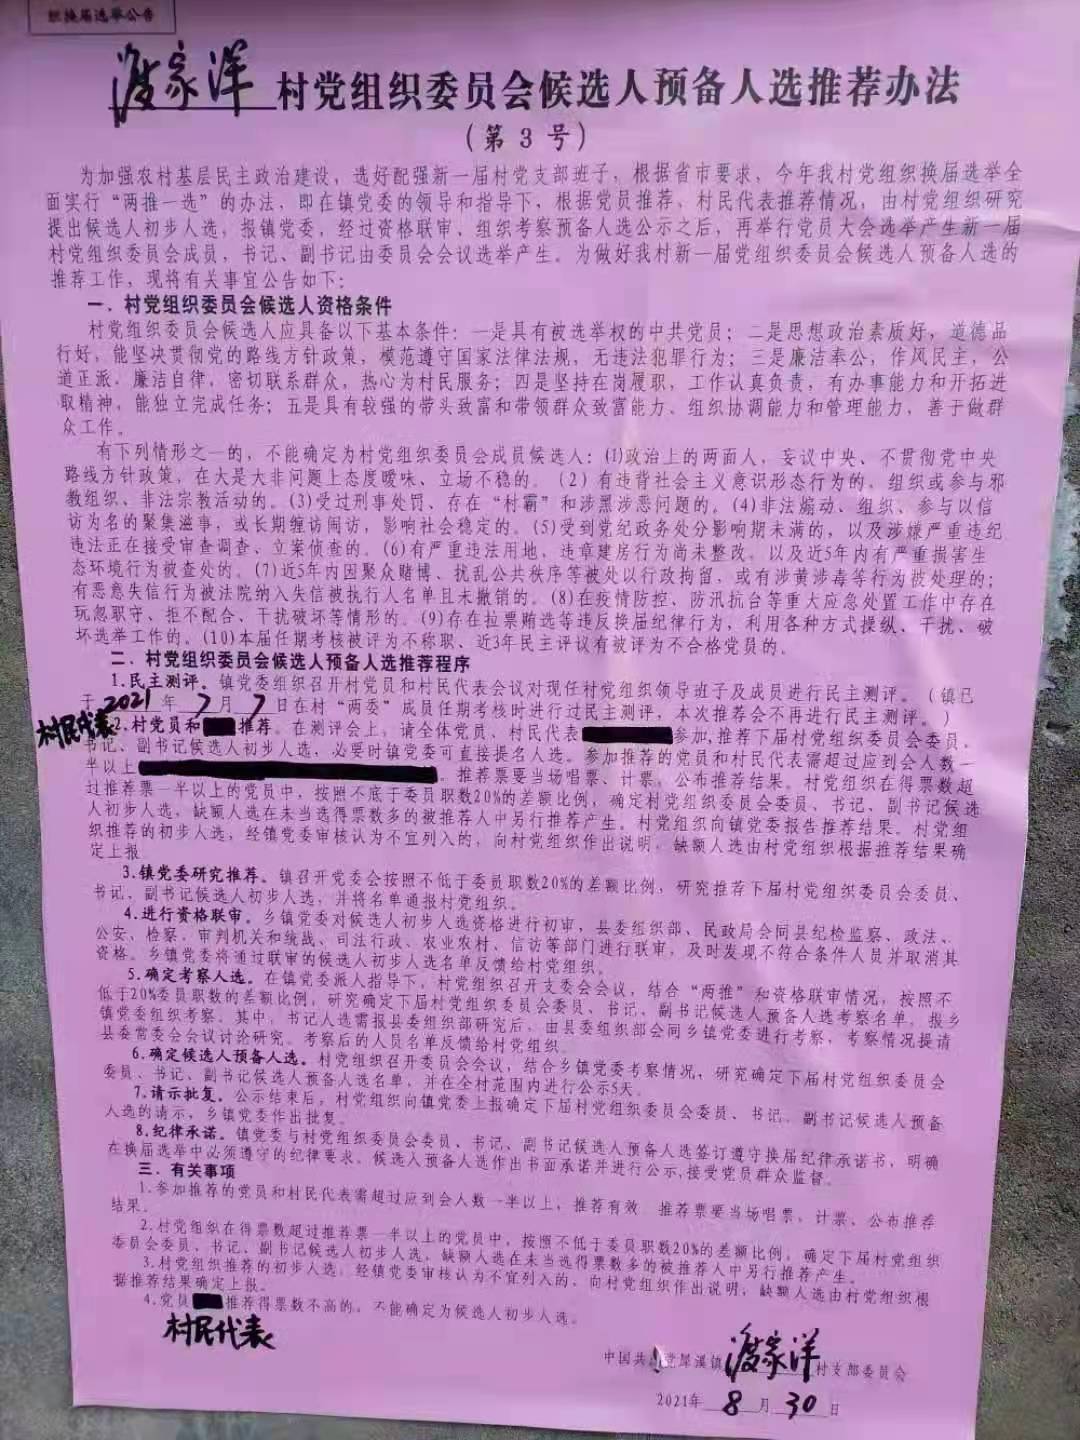 织换届选举公告
渡家洋 村党组织委员会候选人预备人选推荐办法
(第 3 号)
为加强农村基层民主政治建设，选好配强新一届村党支部班子，根据省市要求，今年我村党组织换届选举全
面实行“两推一选”的办法，即在镇党委的领导和指导下，根据党员推荐、村民代表推荐情况，由村党组织研究
提出候选人初步人选，报镇党委，经过资格联审、组织考察预备人选公示之后，再举行党员大会选举产生新一届
村党组织委员会成员，书记、副书记由委员会会议选举产生。为做好我村新一届党组织委员会候选人预备人选的
推荐工作，现将有关事宜公告如下：
一、村党组织委员会候选人资格条件
村党组织委员会候选人应具备以下基本条件：一是具有被选举权的中共党员；二是思想政治素质好，道德品
行好，能坚决贯彻党的路线方针政策，模范遵守国家法律法规，无违法犯罪行为；三是廉洁奉公，作风民主，公
道正派，廉洁自律，密切联系群众，热心为村民服务；四是坚持在岗履职，工作认真负责，有办事能力和开拓进
取精神，能独立完成任务；五是具有较强的带头致富和带领群众致富能力、组织协调能力和管理能力，善于做群
众工作。
有下列情形之一的，不能确定为村党组织委员会成员候选人：(1)政治上的两面人，妄议中央、不贯彻党中央
路线方针政策，在大是大非问题上态度暧昧、立场不稳的。(2)有违背社会主义意识形态行为的，组织或参与邪
教组织、非法宗教活动的。(3)受过刑事处罚、存在“村霸”和涉黑涉恶问题的。(4)非法煽动、组织、参与以信
访为名的聚集滋事，或长期缠访闹访，影响社会稳定的。(5)受到党纪政务处分影响期未满的，以及涉嫌严重违纪
违法正在接受审查调查、立案侦查的。(6)有严重违法用地、违章建房行为尚未整改，以及近5年内有严重损害生
态环境行为被查处的。(7)近5年内因聚众赌博、扰乱公共秩序等被处以行政拘留，或有涉黄涉毒等行为被处理的；
有恶意失信行为被法院纳入失信被执行人名单且未撤销的。(8)在疫情防控、防汛抗台等重大应急处置工作中存在
玩忽职守、拒不配合、干扰破坏等情形的。(9)存在拉票贿选等违反换届纪律行为，利用各种方式操纵、干扰、破
坏选举工作的。(10)本届任期考核被评为不称职、近3年民主评议有被评为不合格党员的。
二、村党组织委员会候选人预备人选推荐程序
1.民主测评。镇党委组织召开村党员和村民代表会议对现任村党组织领导班子及成员进行民主测评。（镇已
于2021年7月7日在村“两委”成员任期考核时进行过民主测评，本次推荐会不再进行民主测评。）
村民代表
2.村党员和 推荐。在测评会上，请全体党员、村民代表 参加，推荐下届村党组织委员会委员、
书记、副书记候选人初步人选，必要时镇党委可直接提名人选。参加推荐的党员和村民代表需超过应到会人数一
半以上 ，推荐票要当场唱票、计票，公布推荐结果。村党组织在得票数超
过推荐票一半以上的党员中，按照不底于委员职数20%的差额比例，确定村党组织委员会委员、书记、副书记候选
人初步人选，缺额人选在未当选得票数多的被推荐人中另行推荐产生。村党组织向镇党委报告推荐结果。村党组
织推荐的初步人选，经镇党委审核认为不宜列入的，向村党组织作出说明，缺额人选由村党组织根据推荐结果确
定上报。
3.镇党委研究推荐。镇召开党委会按照不低于委员职数20%的差额比例，研究推荐下届村党组织委员会委员、
书记、副书记候选人初步人选，并将名单通报村党组织。
4.进行资格联审。乡镇党委对候选人初步人选资格进行初审，县委组织部、民政局会同县纪检监察、政法、
公安、检察，审判机关和统战、司法行政、农业农村、信访等部门进行联审，及时发现不符合条件人员并取消其
资格。乡镇党委将通过联审的候选人初步人选名单反馈给村党组织。
5.确定考察人选。在镇党委派人指导下，村党组织召开支委会会议，结合“两推”和资格联审情况，按照不
低于20%委员职数的差额比例，研究确定下届村党组织委员会委员、书记、副书记候选人预备人选考察名单，报乡
镇党委组织考察。其中，书记人选需报县委组织部研究后，由县委组织部会同乡镇党委进行考察，考察情况提请
县委常委会会议讨论研究。考察后的人员名单反馈给村党组织。
6.确定候选人预备人选。村党组织召开委员会会议，结合乡镇党委考察情况，研究确定下届村党组织委员会
委员、书记、副书记候选人预备人选名单，并在全村范围内进行公示5天。
7.请示批复。公示结束后，村党组织向镇党委上报确定下届村党组织委员会委员、书记、副书记候选人预备
人选的请示，乡镇党委作出批复。
8.纪律承诺。镇党委与村党组织委员会委员、书记、副书记候选人预备人选签订遵守换届纪律承诺书，明确
在换届选举中必须遵守的纪律要求，候选人预备人选作出书面承诺并进行公示，接受党员群众监督。
三、有关事项
1.参加推荐的党员和村民代表需超过应到会人数一半以上，推荐有效 推荐票要当场唱票，计票、公布推荐
结果。
2.村党组织在得票数超过推荐票一半以上的党员中，按照不低于委员职数20%的差额比例，确定下届村党组织
委员会委员、书记、副书记候选人初步人选，缺额人选在未当选得票数多的被推荐人中另行推荐产生。
3.村党组织推荐的初步人选，经镇党委审核认为不宜列入的，向村党组织作出说明，缺额人选由村党组织根
据推荐结果确定上报。
4.党员 推荐得票数不高的，不能确定为候选人初步人选。
村民代表
中国共 党犀溪镇 渡家洋 村支部委员会
2021年 8 月 30 日